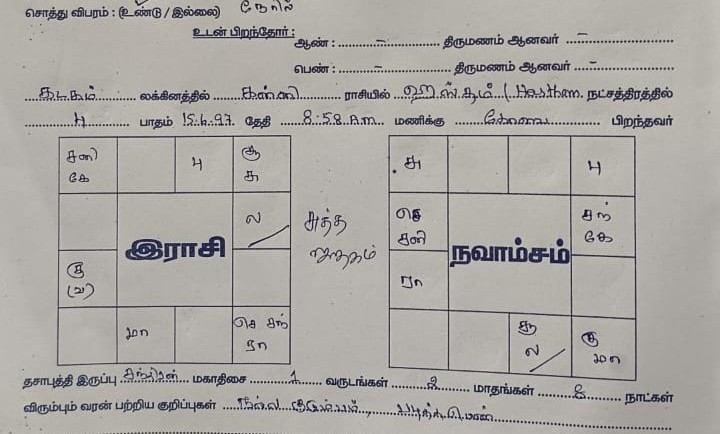 சொத்து விபரம் : (உண்டு / இல்லை) நேரில்
உடன் பிறந்தோர் :
ஆண் : – திருமணம் ஆனவர் –
பெண் : – திருமணம் ஆனவர் –
கடகம் லக்கினத்தில் கன்னி ராசியில் ஹஸ்தம் (Hastham. நட்சத்திரத்தில்
4 பாதம் 15.6.97 தேதி 8:58 A.m மணிக்கு கோவை பிறந்தவர்
சனி கே
பு
சூ சு
ல
இராசி
கு (வ)
மா
செ சந் ரா
சுத்த ஜாதகம்
சு
பு
செ சனி
சந் கே
நவாம்சம்
ரா
சூ ல
கு மா
தசாபுத்தி இருப்பு சந்திரன் மகாதிசை 1 வருடங்கள் 2 மாதங்கள் 8 நாட்கள்
விரும்பும் வரன் பற்றிய குறிப்புகள் நல்ல குடும்பம்,